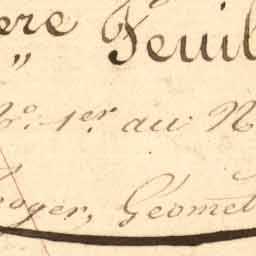 ère Feuil
„
No. 1er. au N
roger, Géomèt